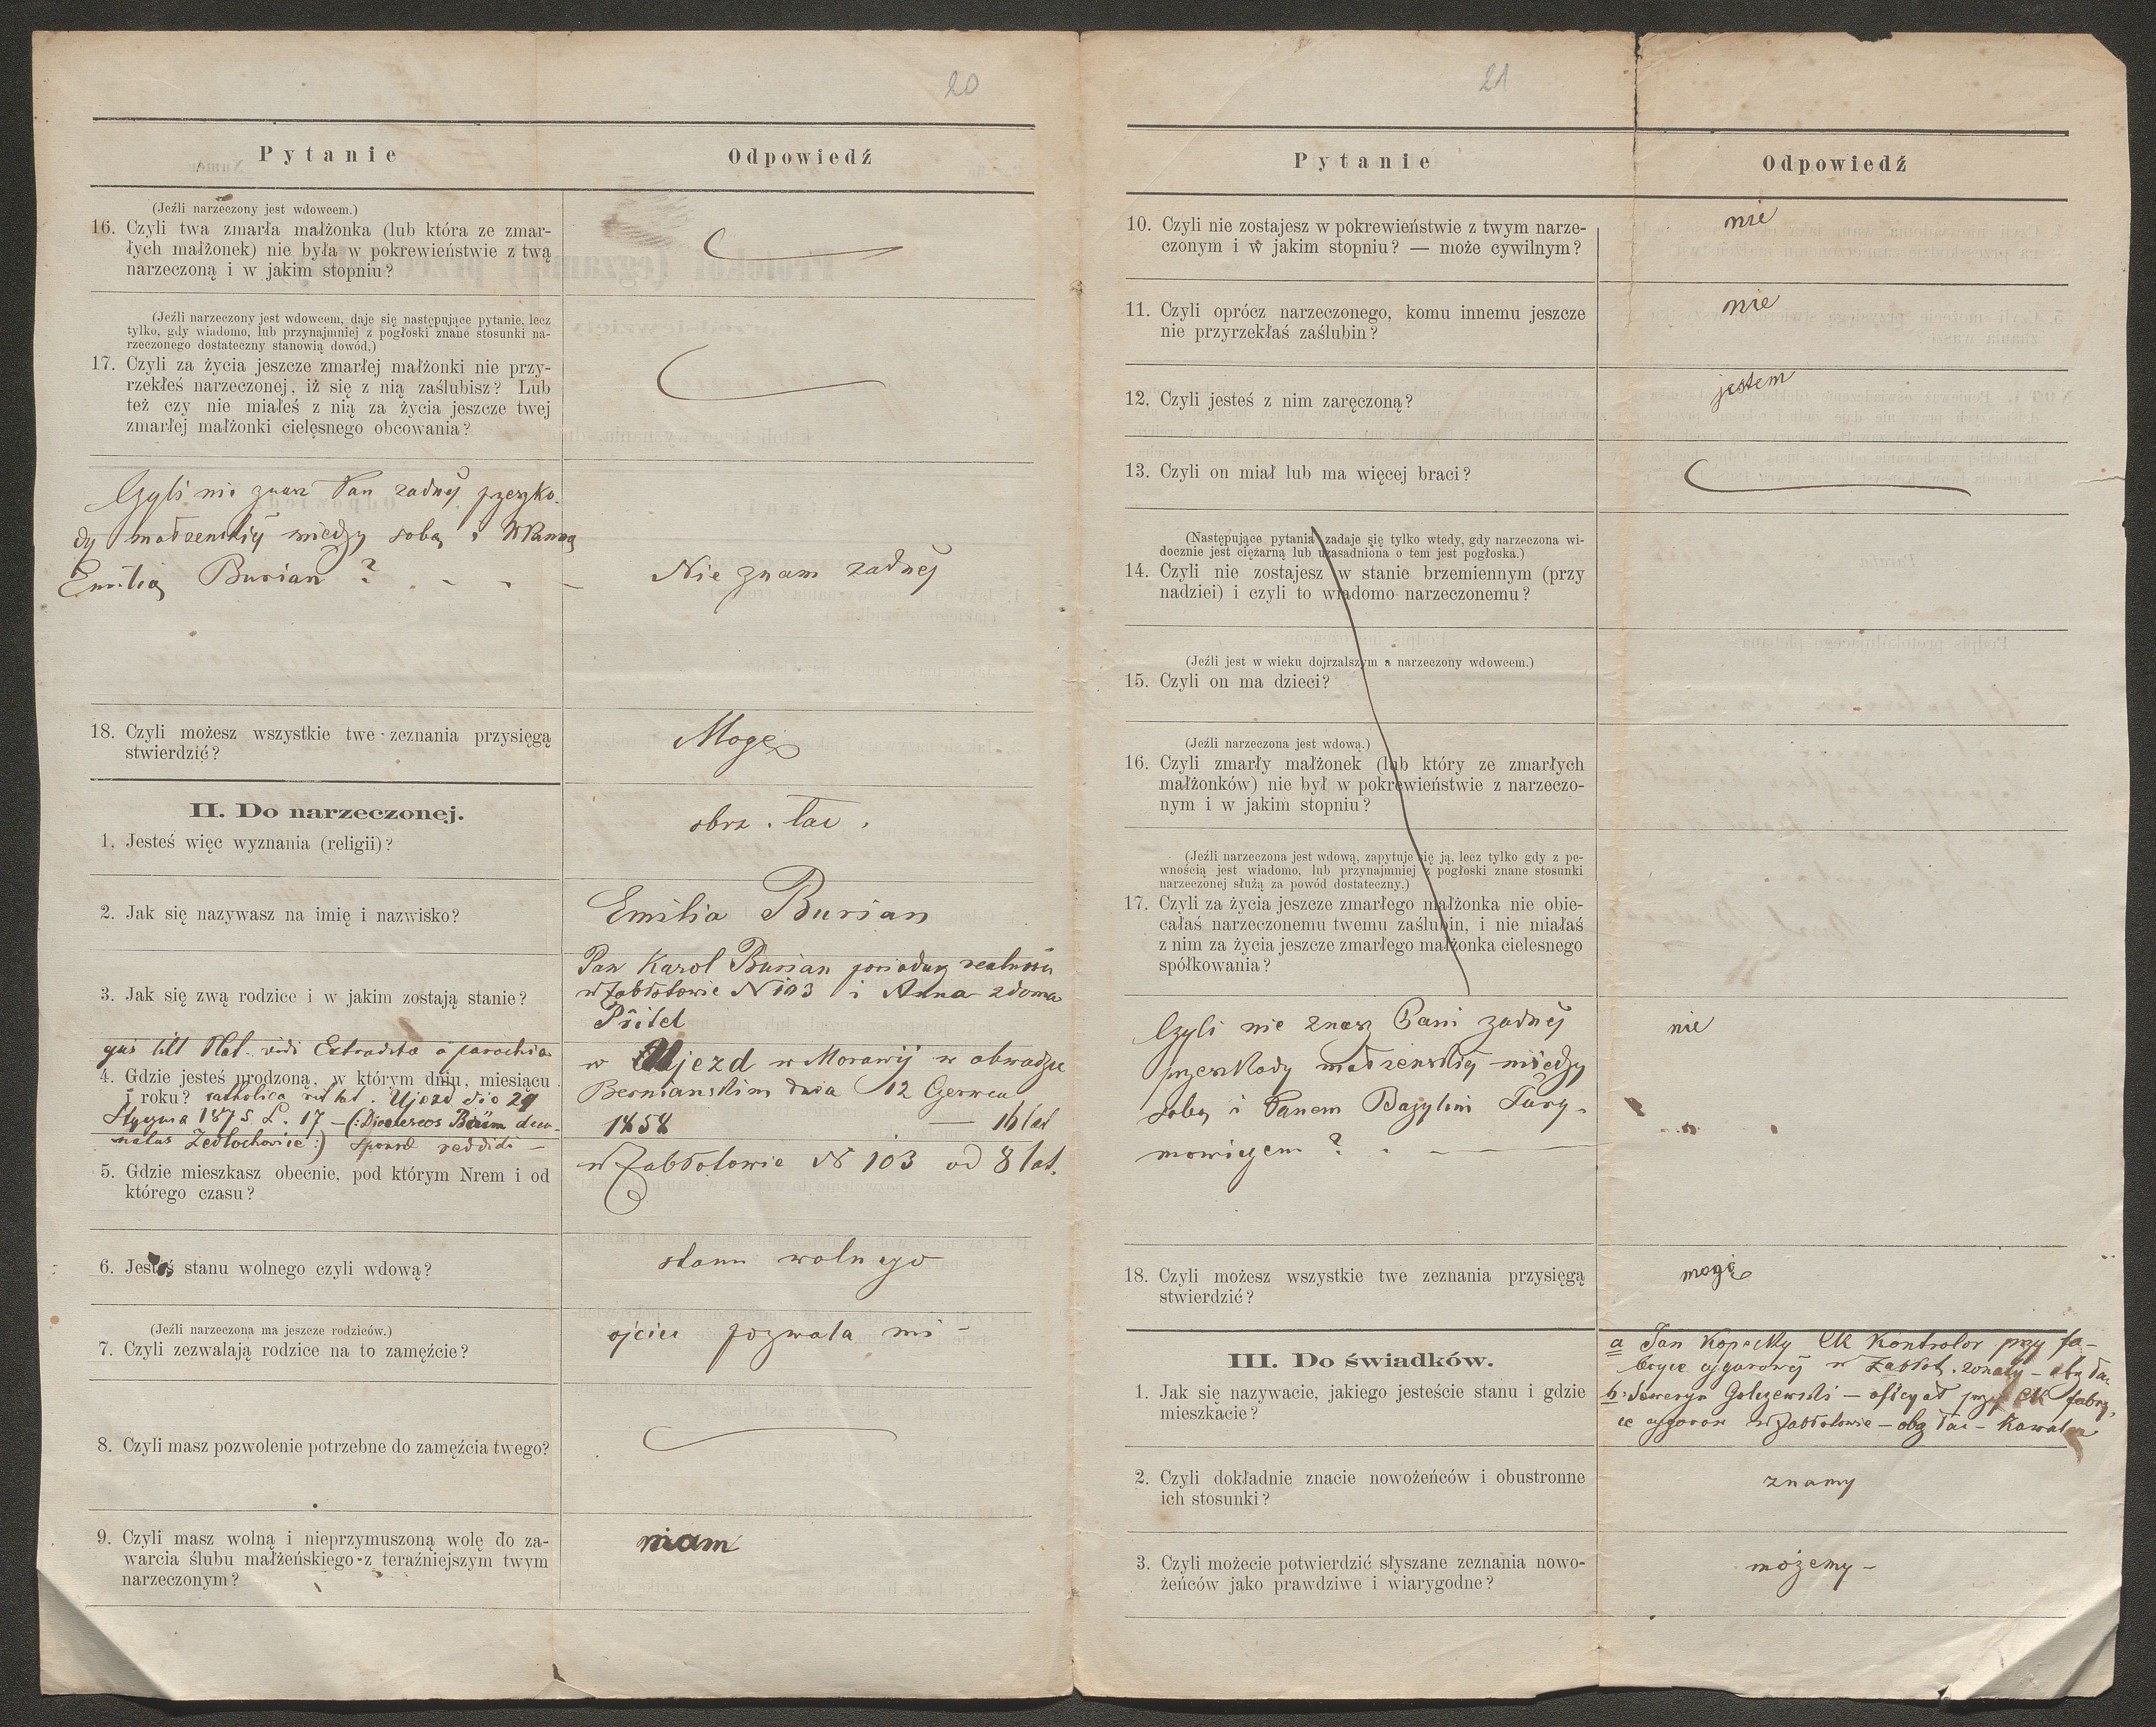 20
Pytanie
Odpowiedź
(Jeźli narzeczony jest wdowcem.)
16. Czyli twa zmarła małżonka (lub która ze zmar-
łych małżonek) nie była w pokrewieństwie z twą
narzeczoną i w jakim stopniu?
(Jeźli narzeczony jest wdowcem, daje się następujące pytanie, lecz
tylko, gdy wiadomo, lub przynajmniej z pogłoski znane stosunki na-
rzeczonego dostateczny stanowią dowód.)
17. Czyli za życia jeszcze zmarłej małżonki nie przy-
rzekłeś narzeczonej, iż się z nią zaślubisz? Lub
też czy nie miałeś z nią za życia jeszcze twej
zmarłej małżonki cielęsnego obcowania?
Czyli nie znasz Pan żadnéj przeszko-
dy małżeńskiéj miedzy sobą i WPanną
Emilią Burian ?
Nie znam żadnéj
18. Czyli możesz wszystkie twe zeznania przysięgą
stwierdzić?
Mogę
II. Do narzeczonej.
1. Jesteś więc wyznania (religii)?
obrz. łac.
2. Jak się nazywasz na imię i nazwisko?
Emilia Burian
3. Jak się zwą rodzice i w jakim zostają stanie?
Pan Karol Burian posiadacz realności
w Zabłotowie N 103 i Anna z doma
Přitel
vidi Extradita a parochia
4. Gdzie jesteś urodzoną, w którym dniu, miesiącu
i roku? catholica Ujezd dto 29
Stycznia 1875 L. 17 - (: Dioeceseos Brün deca-
natus Zedlochovice :) sponsae reddidi -
w Ujezd w Morawij w obwodzie
Bernianskim dnia 12 Czerwca
1858 — 16 lat
5. Gdzie mieszkasz obecnie, pod którym Nrem i od
którego czasu?
w Zabłotowie N 103 od 8 lat.
6. Jesteś stanu wolnego czyli wdową?
stanu wolnego
(Jeźli narzeczona ma jeszcze rodziców.)
7. Czyli zezwalają rodzice na to zamęźcie?
ojciec pozwala mi -
8. Czyli masz pozwolenie potrzebne do zamęźcia twego?
9. Czyli masz wolną i nieprzymuszoną wolę do za-
warcia ślubu małżeńskiego z teraźniejszym twym
narzeczonym?
mam
21
Pytanie
Odpowiedź
10. Czyli nie zostajesz w pokrewieństwie z twym narze-
czonym i w jakim stopniu? — może cywilnym?
nie
11. Czyli oprócz narzeczonego, komu innemu jeszcze
nie przyrzekłaś zaślubin?
nie
12. Czyli jesteś z nim zaręczoną?
jestem
13. Czyli on miał lub ma więcej braci?
(Następujące pytania zadaje się tylko wtedy, gdy narzeczona wi-
docznie jest ciężarną lub uzasadniona o tem jest pogłoska.)
14. Czyli nie zostajesz w stanie brzemiennym (przy
nadziei) i czyli to wiadomo narzeczonemu?
(Jeźli jest w wieku dojrzalszym a narzeczony wdowcem.)
15. Czyli on ma dzieci?
(Jeźli narzeczona jest wdową.)
16. Czyli zmarły małżonek (lub który ze zmarłych
małżonków) nie był w pokrewieństwie z narzeczo-
nym i w jakim stopniu?
(Jeźli narzeczona jest wdową, zapytuje się ją, lecz tylko gdy z pe-
wnością jest wiadomo, lub przynajmniej z pogłoski znane stosunki
narzeczonej służą za powód dostateczny.)
17. Czyli za życia jeszcze zmarłego małżonka nie obie-
całaś narzeczonemu twemu zaślubin, i nie miałaś
z nim za życia jeszcze zmarłego małżonka cielesnego
spółkowania?
Czyli nie znasz Pani żadnéj
przeszkody małżeńskiéj miedzy
sobą i Panem Bazylim Tury-
mowiczem ?
nie
18. Czyli możesz wszystkie twe zeznania przysięgą
stwierdzić?
mogę
III. Do świadków.
1. Jak się nazywacie, jakiego jesteście stanu i gdzie
mieszkacie?
a Jan Kopecky CK Kontrolor przy fa-
bryce cygarowéj w Zabłot. żonaty - obrz. łac.
b. Seweryn Golczewski - oficyał przy CK fabry-
ce cygarow w Zabłotowie - obrz łac - Kawaler
2. Czyli dokładnie znacie nowożeńców i obustronne
ich stosunki?
znamy
3. Czyli możecie potwierdzić słyszane zeznania nowo-
żeńców jako prawdziwe i wiarygodne?
możemy -